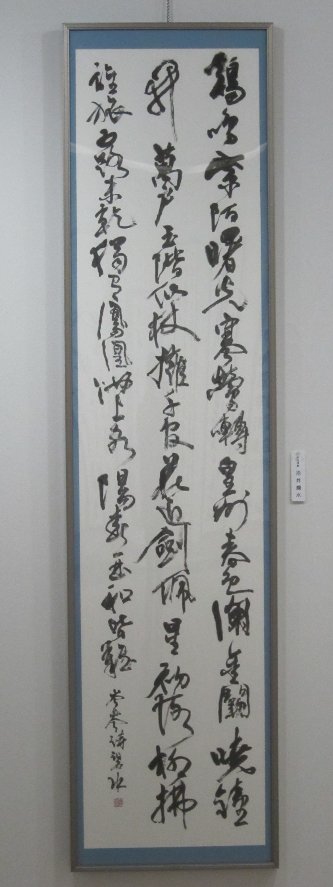 鶏鳴紫陌曙光寒鶯囀皇州春色闌金闕曉鐘
開萬戸玉階仙仗擁千官花迎劍佩星初落柳拂
旌旗露未乾獨有鳳凰池上客陽春一曲和皆難 岑参詩